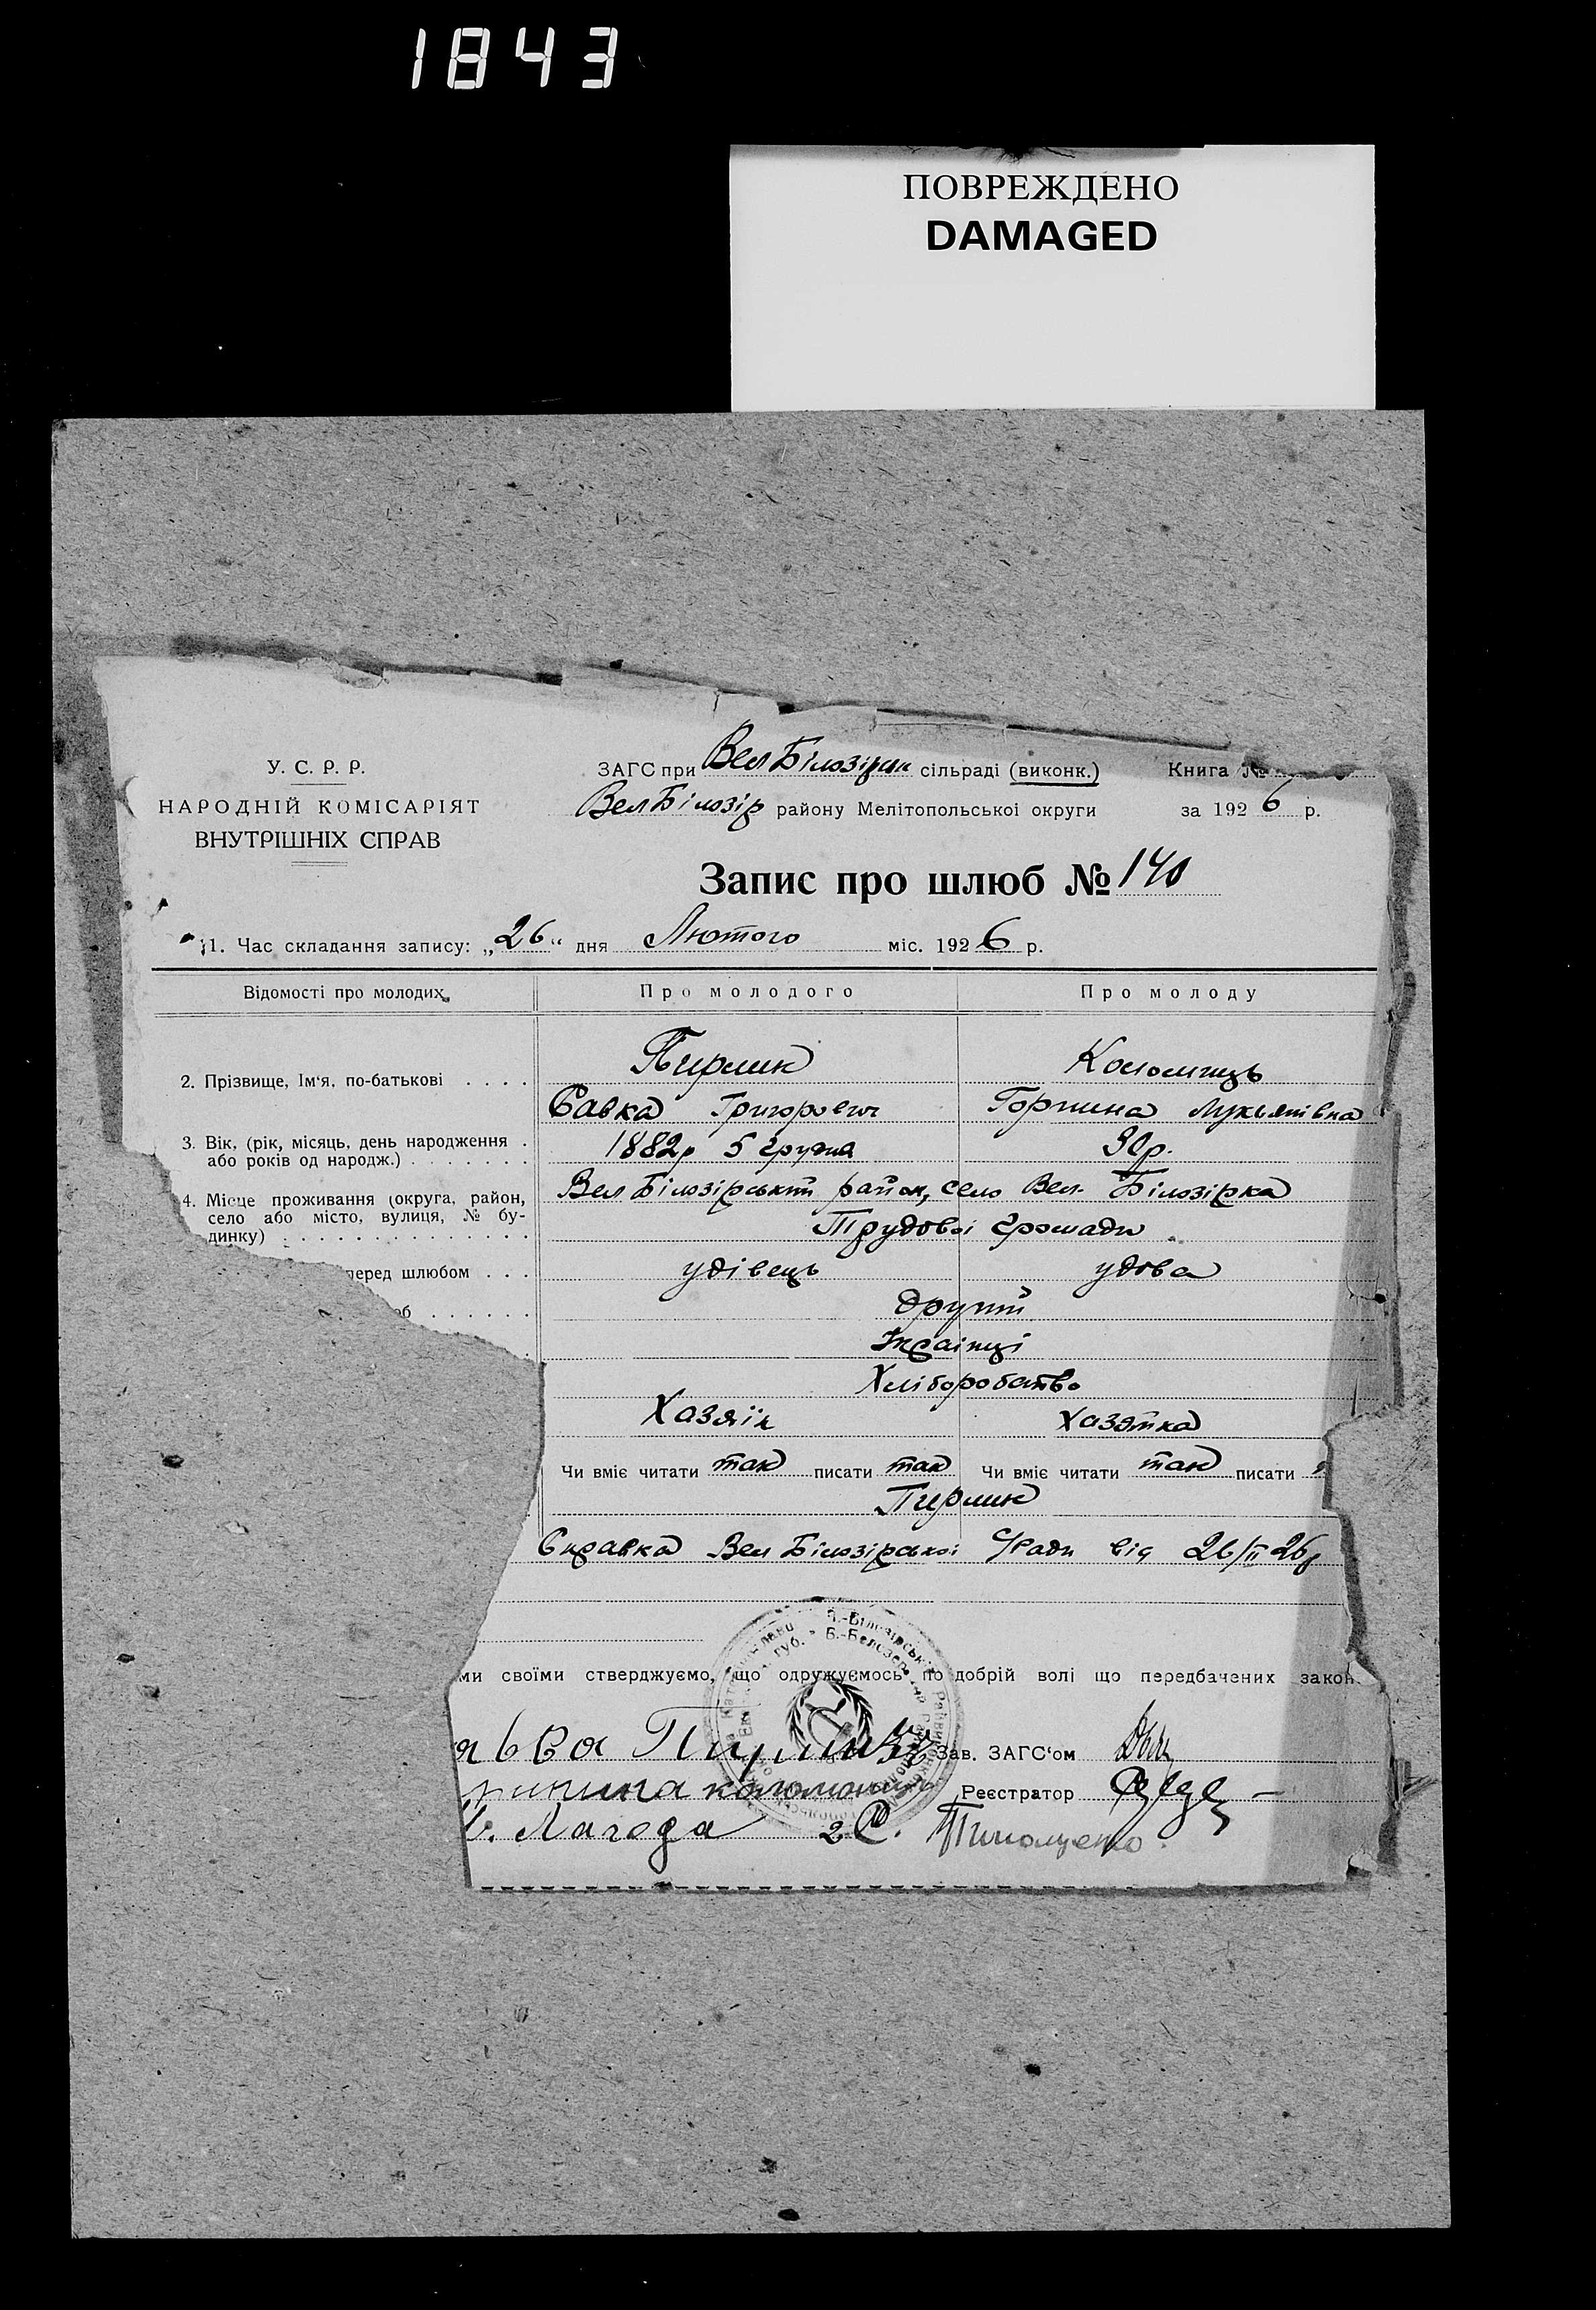 1843
ПОВРЕЖДЕНО
DAMAGED
У. С. Р. Р.
НАРОДНІЙ КОМІСАРІЯТ
ВНУТРІШНІХ СПРАВ
ЗАГС при Вел Білозірск сільраді (виконк.) Книга №
Вел Білозір району Мелітопольської округи за 1926 р.
Запис про шлюб № 140
1. Час складання запису: „26“ дня Лютого міс. 1926 р.
Відомості про молодих Про молодого Про молоду
2. Прізвище, Ім'я, по-батькові . . . . Пирлик Коломиець
Савка Григорович Горпина Лукьянівна
3. Вік, (рік, місяць, день народження . 1882р 5 грудня 30р.
або років од народж.) . . . . . . .
4. Місце проживання (округа, район, Вел Білозірський район, село Вел. Білозірка
село або місто, вулиця, № бу-
динку) . . . . . . . . . . . . . . Трудової Громади
перед шлюбом . . . удівець удова
об . . . . . . Другий
Українці
Хліборобство
Хазяїн Хазяйка
Чи вміє читати так писати так Чи вміє читати так писати
Пирлик
Справка Вел Білозірської С/Ради від 26/II 26р
ми своїми стверджуємо, що одружуємось по добрій волі що передбачених закон
авка Пирлик Зав. ЗАГС'ом
рпина коломиець Реєстратор
Лагода 2